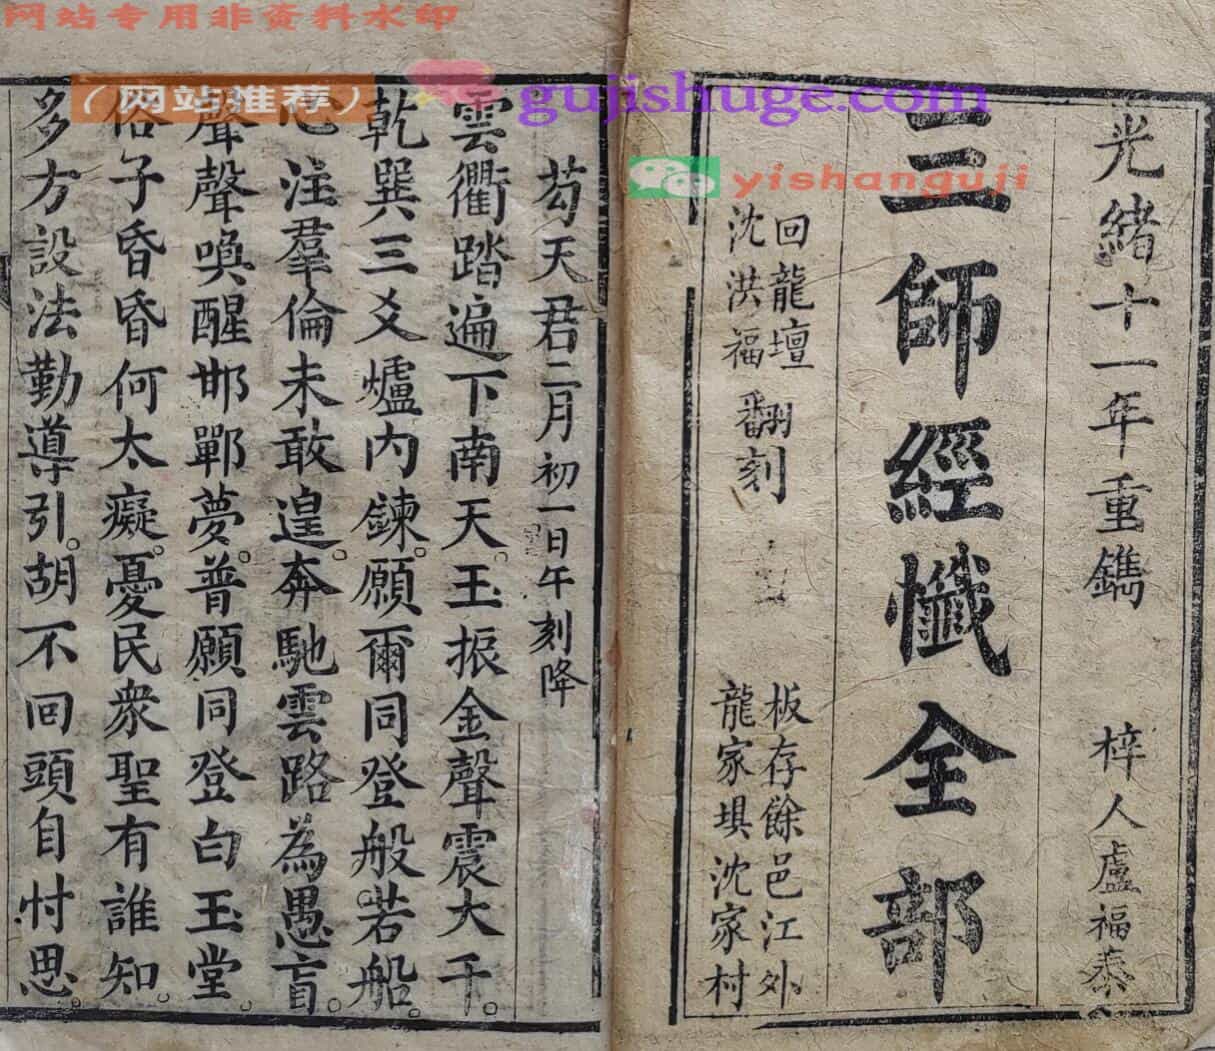 网站专用非资料水印
(网站推荐)
gujishuge.com
yishanguji
光緒十一年重鐫 梓人盧福泰
三師經懺全部
回龍壇
沈洪福
翻刻
板存餘邑江外
龍家埧沈家村
芶天君二月初一日午刻降
雲衢踏遍下南天。玉振金聲震大千。
乾巽三爻爐內鍊。願爾同登般若船。
心注羣倫未敢遑。奔馳雲路為愚盲。
聲聲喚醒邯鄲夢。普願同登白玉堂。
俗子昏昏何太癡。憂民衆聖有誰知。
多方設法勤導引。胡不回頭自忖思。